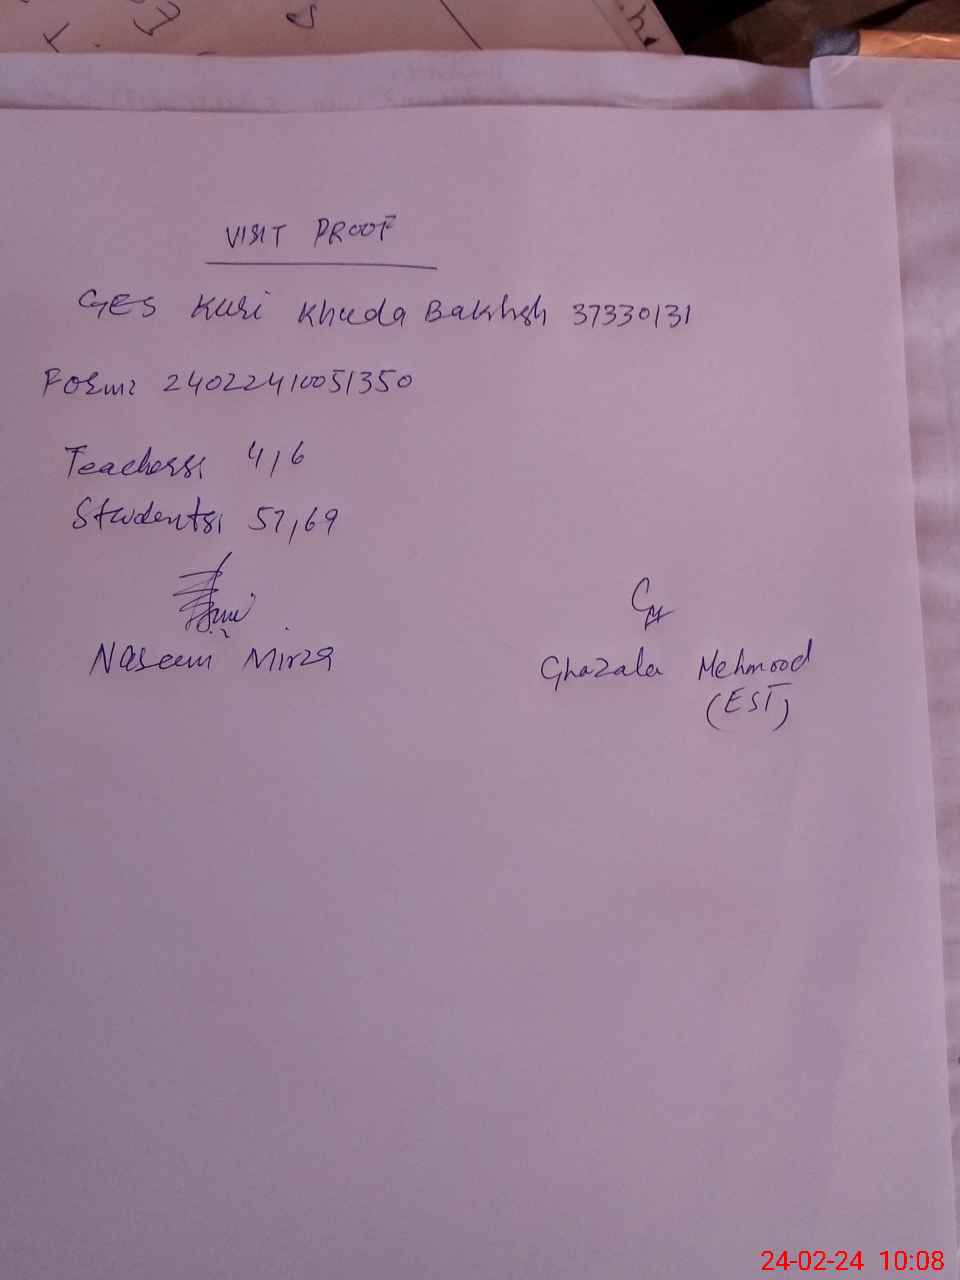 VISIT PROOF
GES Kuri Khuda Bakhsh 37330131
Form: 24022410051350
Teachers: 4,6
Students: 57,69
Naseem Mirza
Ghazala Mehmood
(EST)
24-02-24 10:08